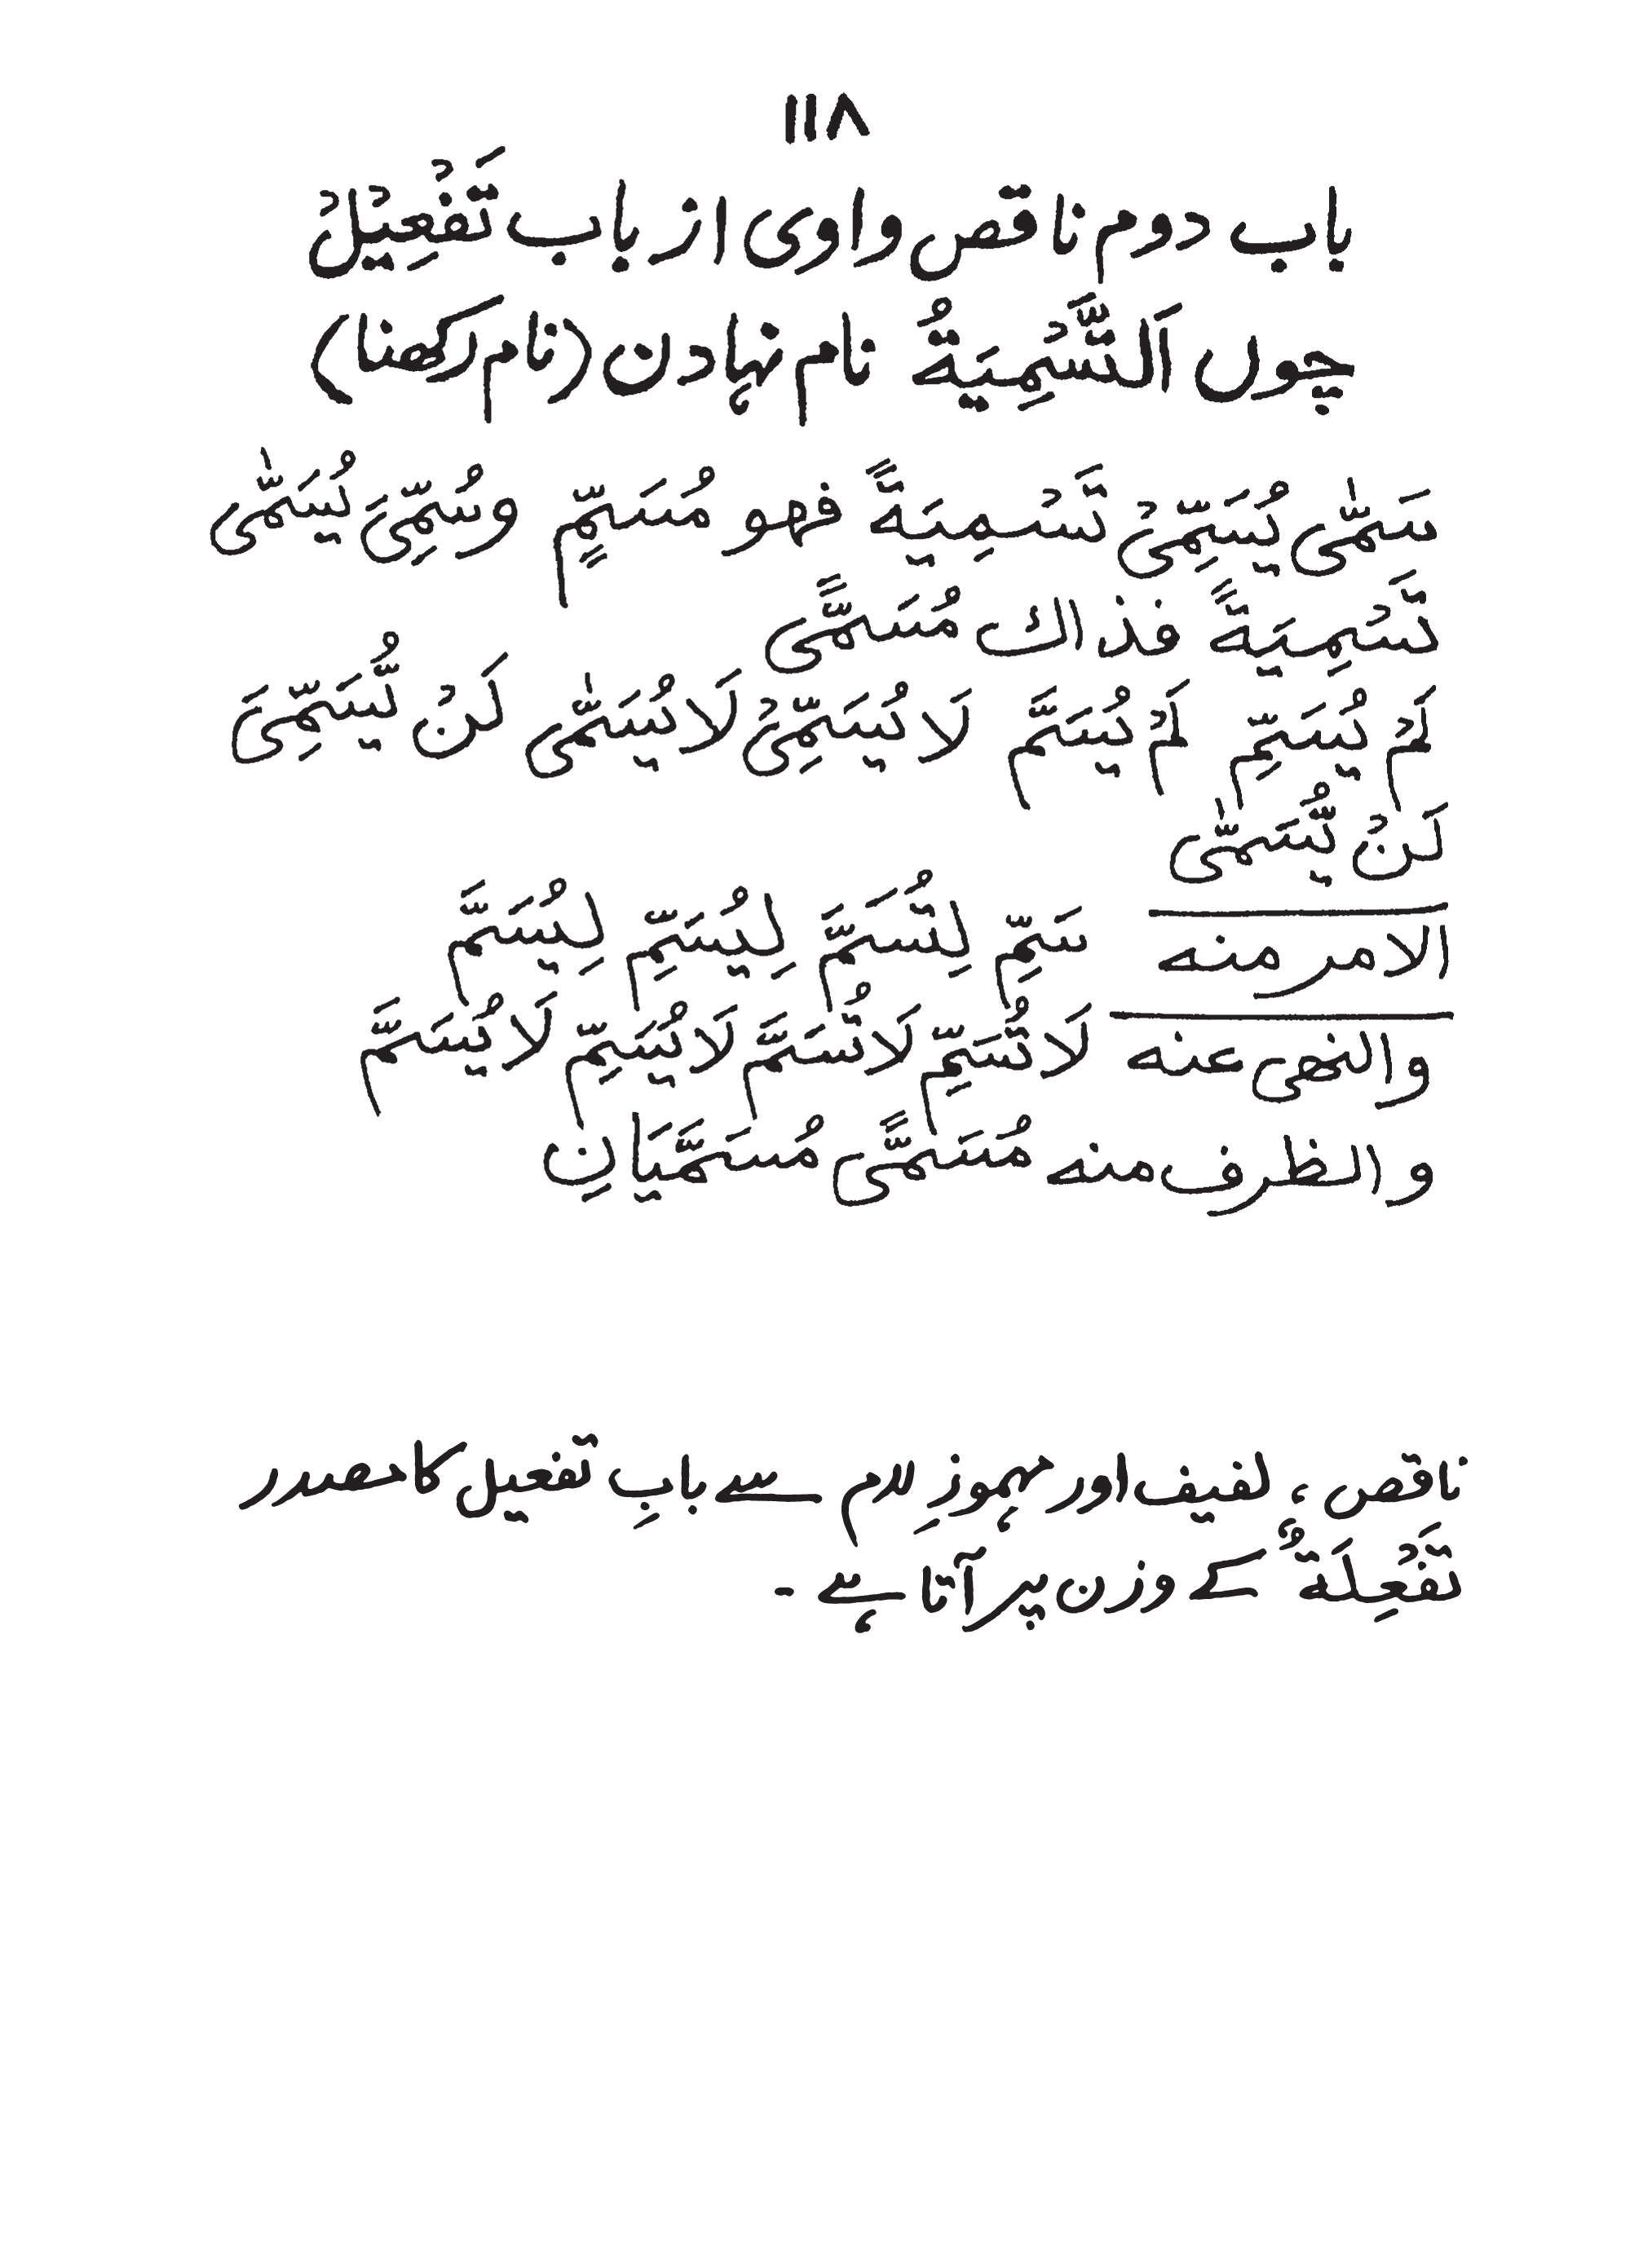 ۱۱۸
باب دوم ناقص واوی از باب تَفْعِیْلْ
چوں اَلتَّسْمِیَةُ نام نہادن (نام رکھنا)
سَمّٰى یُسَمِّیْ تَسْمِیَةً فهو مُسَمٍّ وسُمِّیَ یُسَمّٰى
تَسْمِیَةً فذاك مُسَمًّى
لَمْ یُسَمِّ لَمْ یُسَمَّ لَا یُسَمِّیْ لَا یُسَمّٰى لَنْ یُّسَمِّیَ
لَنْ یُّسَمّٰى
الامر منه سَمِّ لِتُسَمَّ لِیُسَمِّ لِیُسَمَّ
والنهی عنه لَا تُسَمِّ لَا تُسَمَّ لَا یُسَمِّ لَا یُسَمَّ
و الظرف منه مُسَمًّى مُسَمَّیَانِ
ناقص، لفیف اور مہموزِ لام سے بابِ تفعیل کا مصدر
تَفْعِلَةٌ کے وزن پر آتا ہے ۔